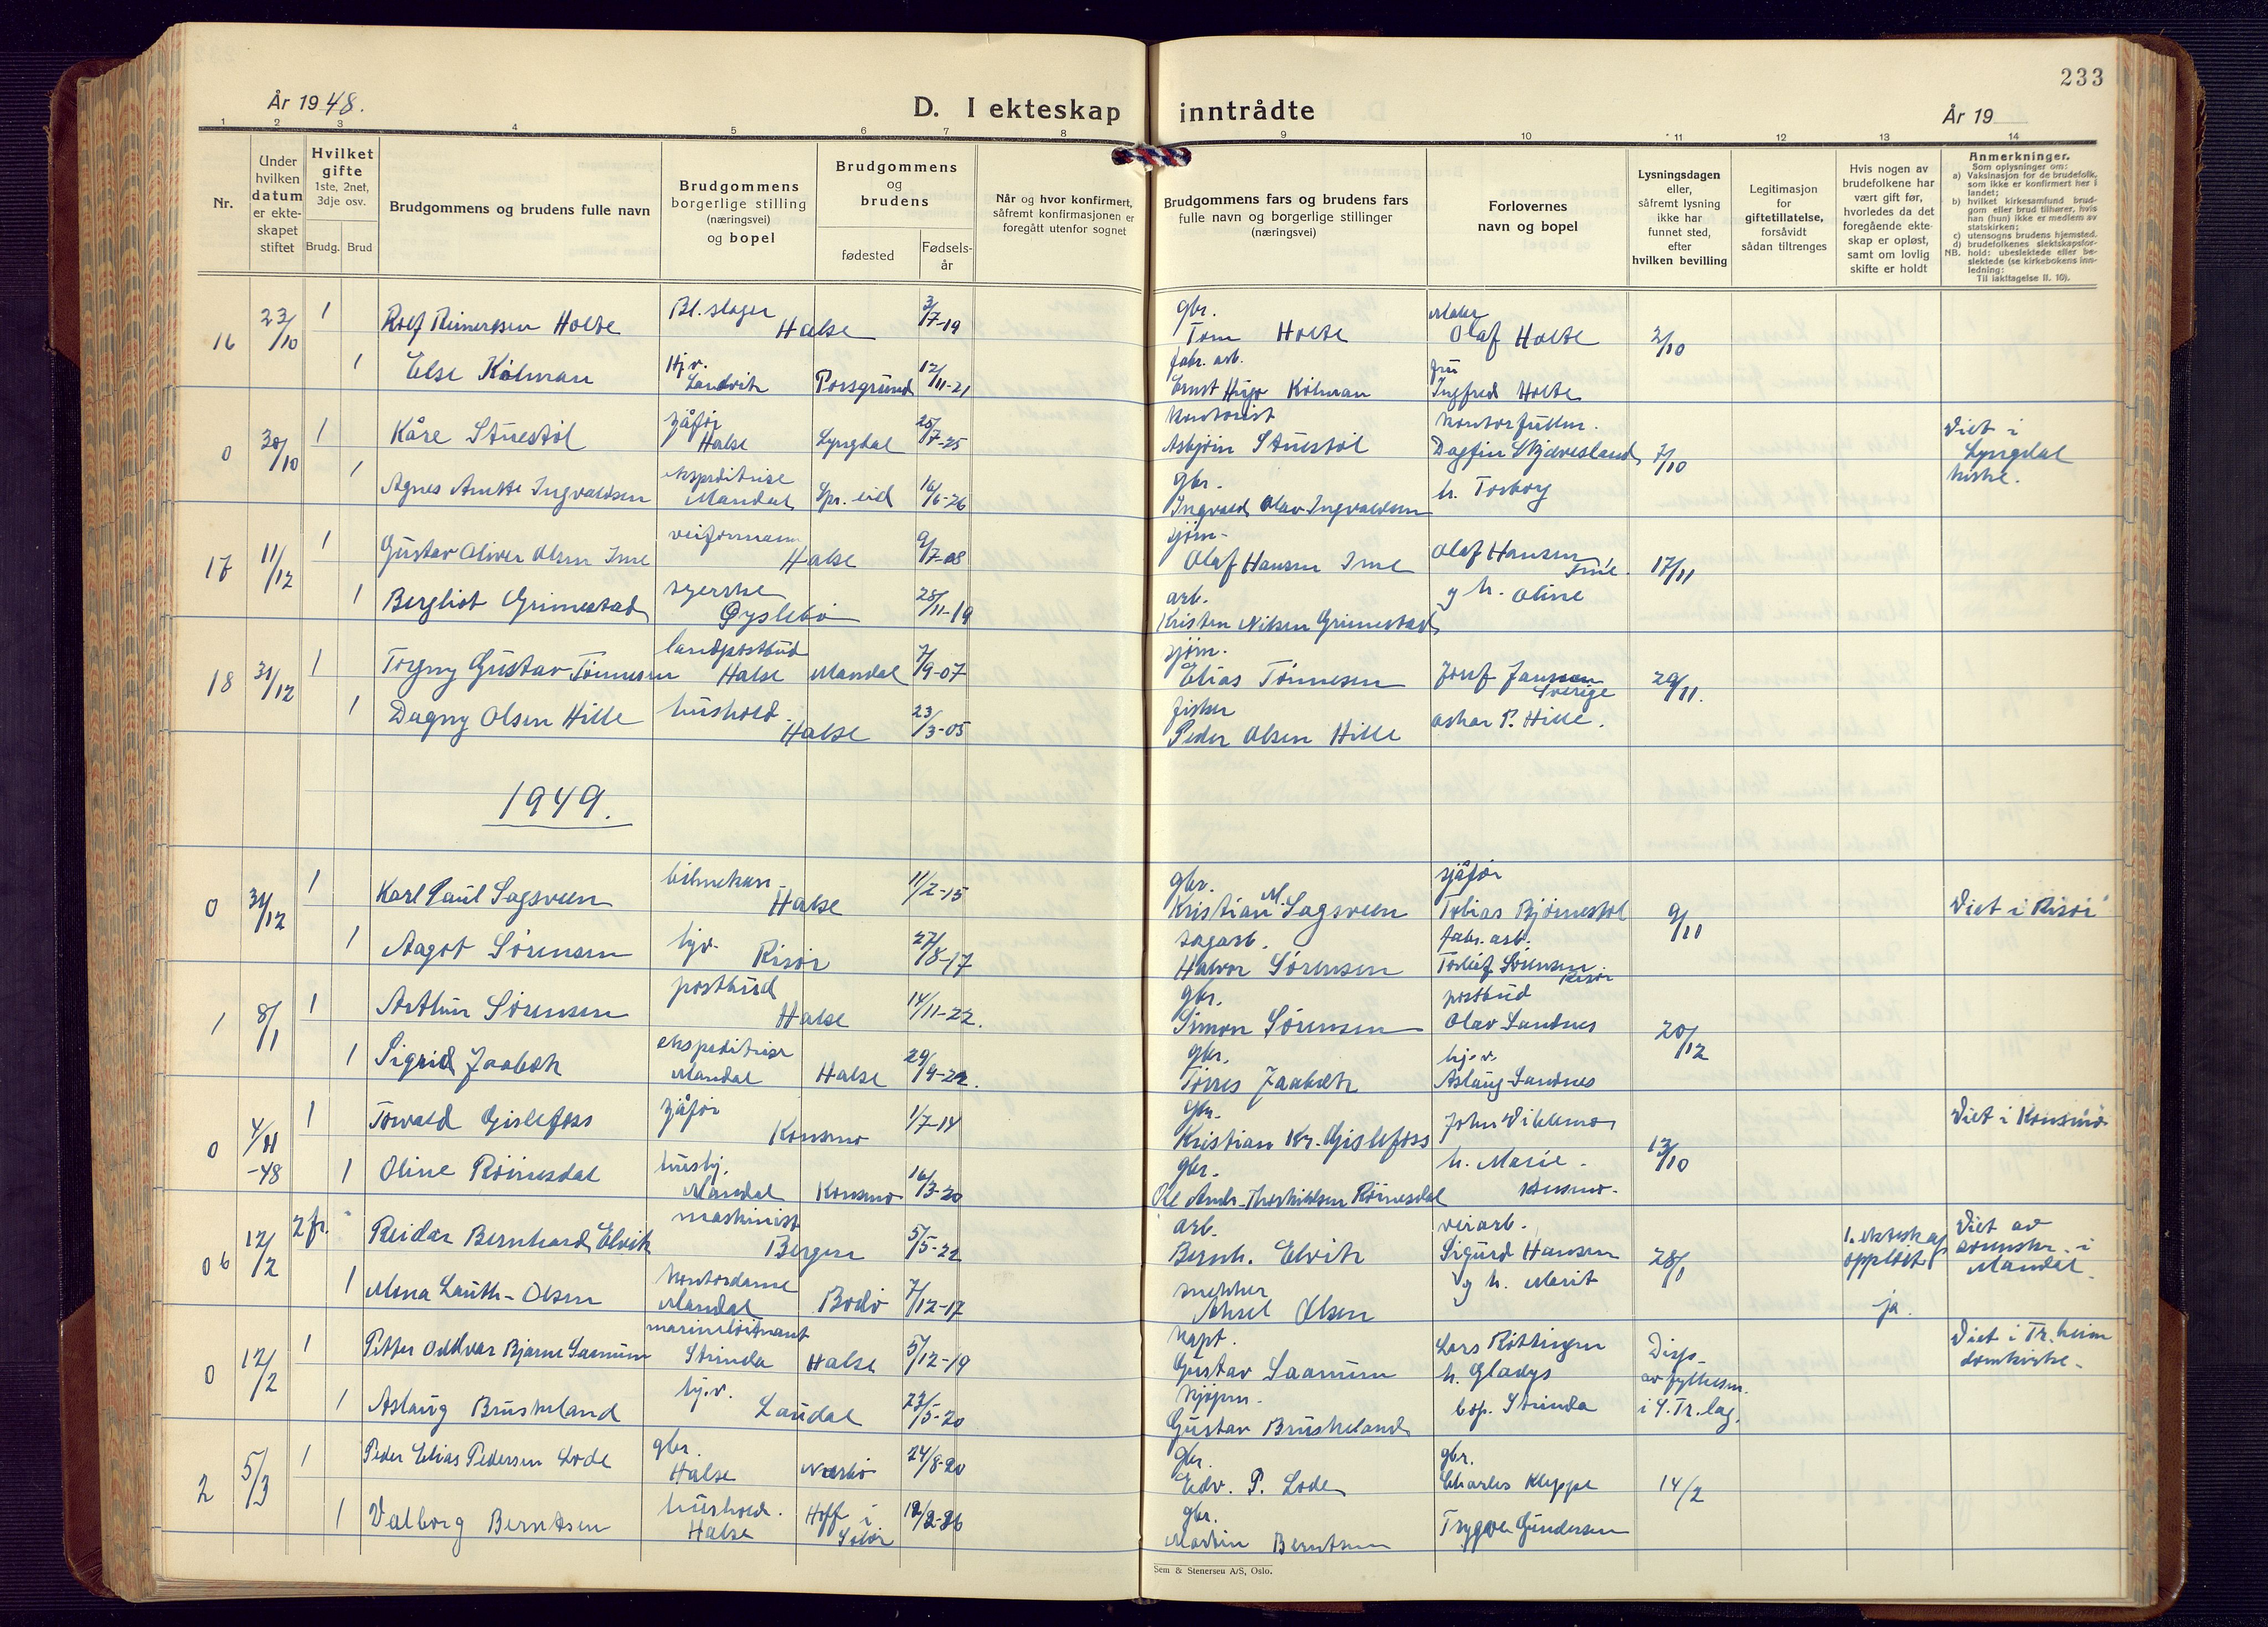 233
År 1948.
D. I ekteskap inntrådte
År 19
1 2 3 4 5 6 7 8 9 10 11 12 13 14
Nr.
Under hvilken datum er ekte-skapet stiftet
Hvilket gifte
1ste, 2net, 3dje osv.
Brudg. Brud
Brudgommens og brudens fulle navn
Brudgommens borgerlige stilling (næringsvei) og bopel
Brudgommens og brudens
fødested
Fødsels-år
Når og hvor konfirmert, såfremt konfirmasjonen er foregått utenfor sognet
Brudgommens fars og brudens fars fulle navn og borgerlige stillinger (næringsvei)
Forlovernes navn og bopel
Lysningsdagen eller, såfremt lysning ikke har funnet sted, efter hvilken bevilling
Legitimasjon for giftetillatelse, forsåvidt sådan tiltrenges
Hvis nogen av brudefolkene har vært gift før, hvorledes da det foregående ekte-skap er opløst, samt om lovlig skifte er holdt
Anmerkninger.
Som oplysninger om:
a) Vaksinasjon for de brudefolk, som ikke er konfirmert her i landet;
b) hvilket kirkesamfund brud-gom eller brud tilhører, hvis han (hun) ikke er medlem av statskirken;
c) utensogns brudens hjemsted.
d) brudefolkenes slektskapsfor-hold: ubeslektede eller be-slektede (se kirkebokens inn-ledning:
NB. Til iakttagelse II. 10).
16 23/10 1 Rolf Reinertsen Holte Bl.slager Halse 3/7-19 gbr. Tom Holte Olaf Holte 2/10
1 Else Kolman Hj.v. Landvik Porsgrund 12/11-21 fabr. arb. Ernst Hugo Kolman fru Ingfred Holte
0 30/10 1 Kåre Stuestøl sjåfør Halse Lyngdal 25/7-25 kontorist Asbjørn Stuestøl kontorfullm. Dagfin Skjævesland 7/10 Viet i Lyngdal kirke.
1 Agnes Anette Ingvaldsen ekspeditrise Mandal Spr. eid 16/6-26 gbr. Ingvald Olav Ingvaldsen h. Torborg
17 11/12 1 Gustav Oliver Olsen Ime veiformann Halse 9/7-08 sjøm. Olaf Hansen Ime Olaf Hansen Ime 17/11
1 Bergliot Grimestad syerske Øyslebø 28/11-19 arb. Kristen Nilsen Grimestad og h. Oline
18 31/12 1 Torgny Gustav Tønnesen landpostbud Halse Mandal 7/9-07 sjøm. Elias Tønnesen Josef Janssen Sverige 29/11.
1 Dagny Olsen Hille hushold. Halse 23/3-05 fisker Peder Olsen Hille Oskar P. Hille.
1949.
0 31/12 1 Karl Paul Sagsveen bilmekan. Halse 11/2-15 gbr. Kristian M. Sagsveen sjåfør Tobias Bjørnestøl 9/11 Viet i Risør
1 Aagot Sørensen hjv. Risør 27/8-17 sagarb. Halvor Sørensen fabr. arb. Torleif Sørensen Risør
1 8/1 1 Arthur Sørensen postbud Halse 14/11-22. gbr. Simon Sørensen postbud Olav Sandnes 20/12
1 Sigrid Jaabæk ekspeditrise Mandal Halse 29/4-22. gbr. Tørres Jaabæk hj.v. Aslaug Sandnes
0 4/11 -48 1 Torvald Gislefoss sjåfør Konsmo 1/7-14 gbr. Kristian Kr. Gislefoss John Viblemo 13/10 Viet i Konsmo
1 Oline Røinesdal hushj. Mandal Konsmo 16/3-20 gbr. Ole Andr. Thorkildsen Røinesdal h. Marie. Konsmo.
06 12/2 2 fr. Reidar Bernhard Elvik maskinist Bergen 5/5-22 arb. Bernh. Elvik veiarb. Sigurd Hansen 28/1 1. ekteskap oppløst Viet av sorenskr. i Mandal.
1 Mona Lauth-Olsen kontordame Mandal Bodø 7/12-17 snekker Aksel Olsen og h. Marit ja.
0 12/2 1 Petter Oddvar Bjarne Saanum marineløitnant Strinda Halse 5/12-19 kapt. Gustav Saanum Lars Røttingen Disp. av fylkesm. i S. Tr.lag. Viet i Tr.heim domkirke.
1 Aslaug Bruskeland hj.v. Laudal 23/5-20 kjøpm. Gustav Bruskeland h. Gladys bop. Strinda
2 5/3 1 Peder Elias Pedersen Lode gbr. Halse Nærbø 24/8-20 gbr. Edv. P. Lode gbr. Charles Kleppe 14/2
1 Valborg Berntsen hushold. Halse Hoff i Solør 12/2-26 gbr. Martin Berntsen Trygve Gundersen
Sem & Stenersen A/S, Oslo.